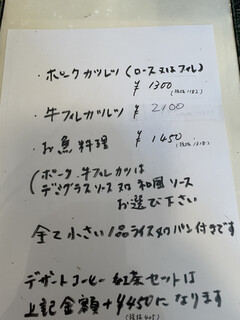 ・ポークカツレツ (ロース又はフィレ)
¥1300
(税抜1182)
・牛フィレカツレツ ¥2100
・お魚料理 ¥1450
(税抜1318)
(ポーク、牛フィレカツは
デミグラスソース又は和風ソース
お選び下さい
全て小さい1品ライス又はパン付きです
デザートコーヒー紅茶セットは
上記金額+¥450になります
(税抜405)